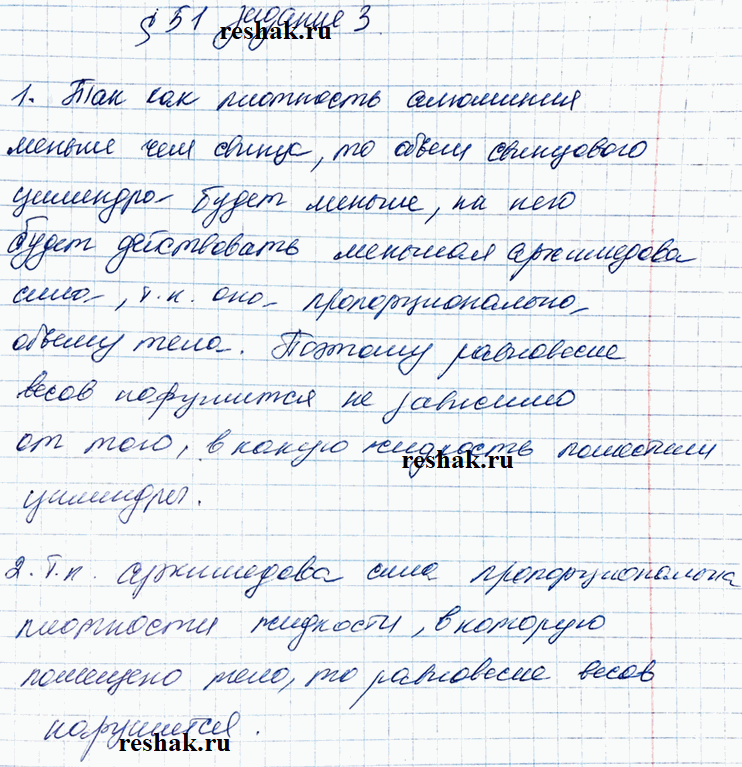 § 51 задание 3
reshak.ru
1. Так как плотность алюминия
меньше чем свинца, то объем свинцового
цилиндра будет меньше, на него
будет действовать меньшая архимедова
сила, т.к. она пропорциональна
объему тела. Поэтому равновесие
весов нарушится не зависимо
от того, в какую жидкость поместили
reshak.ru
цилиндры.
2. Т.к. архимедова сила пропорциональна
плотности жидкости, в которую
помещено тело, то равновесие весов
нарушится.
reshak.ru